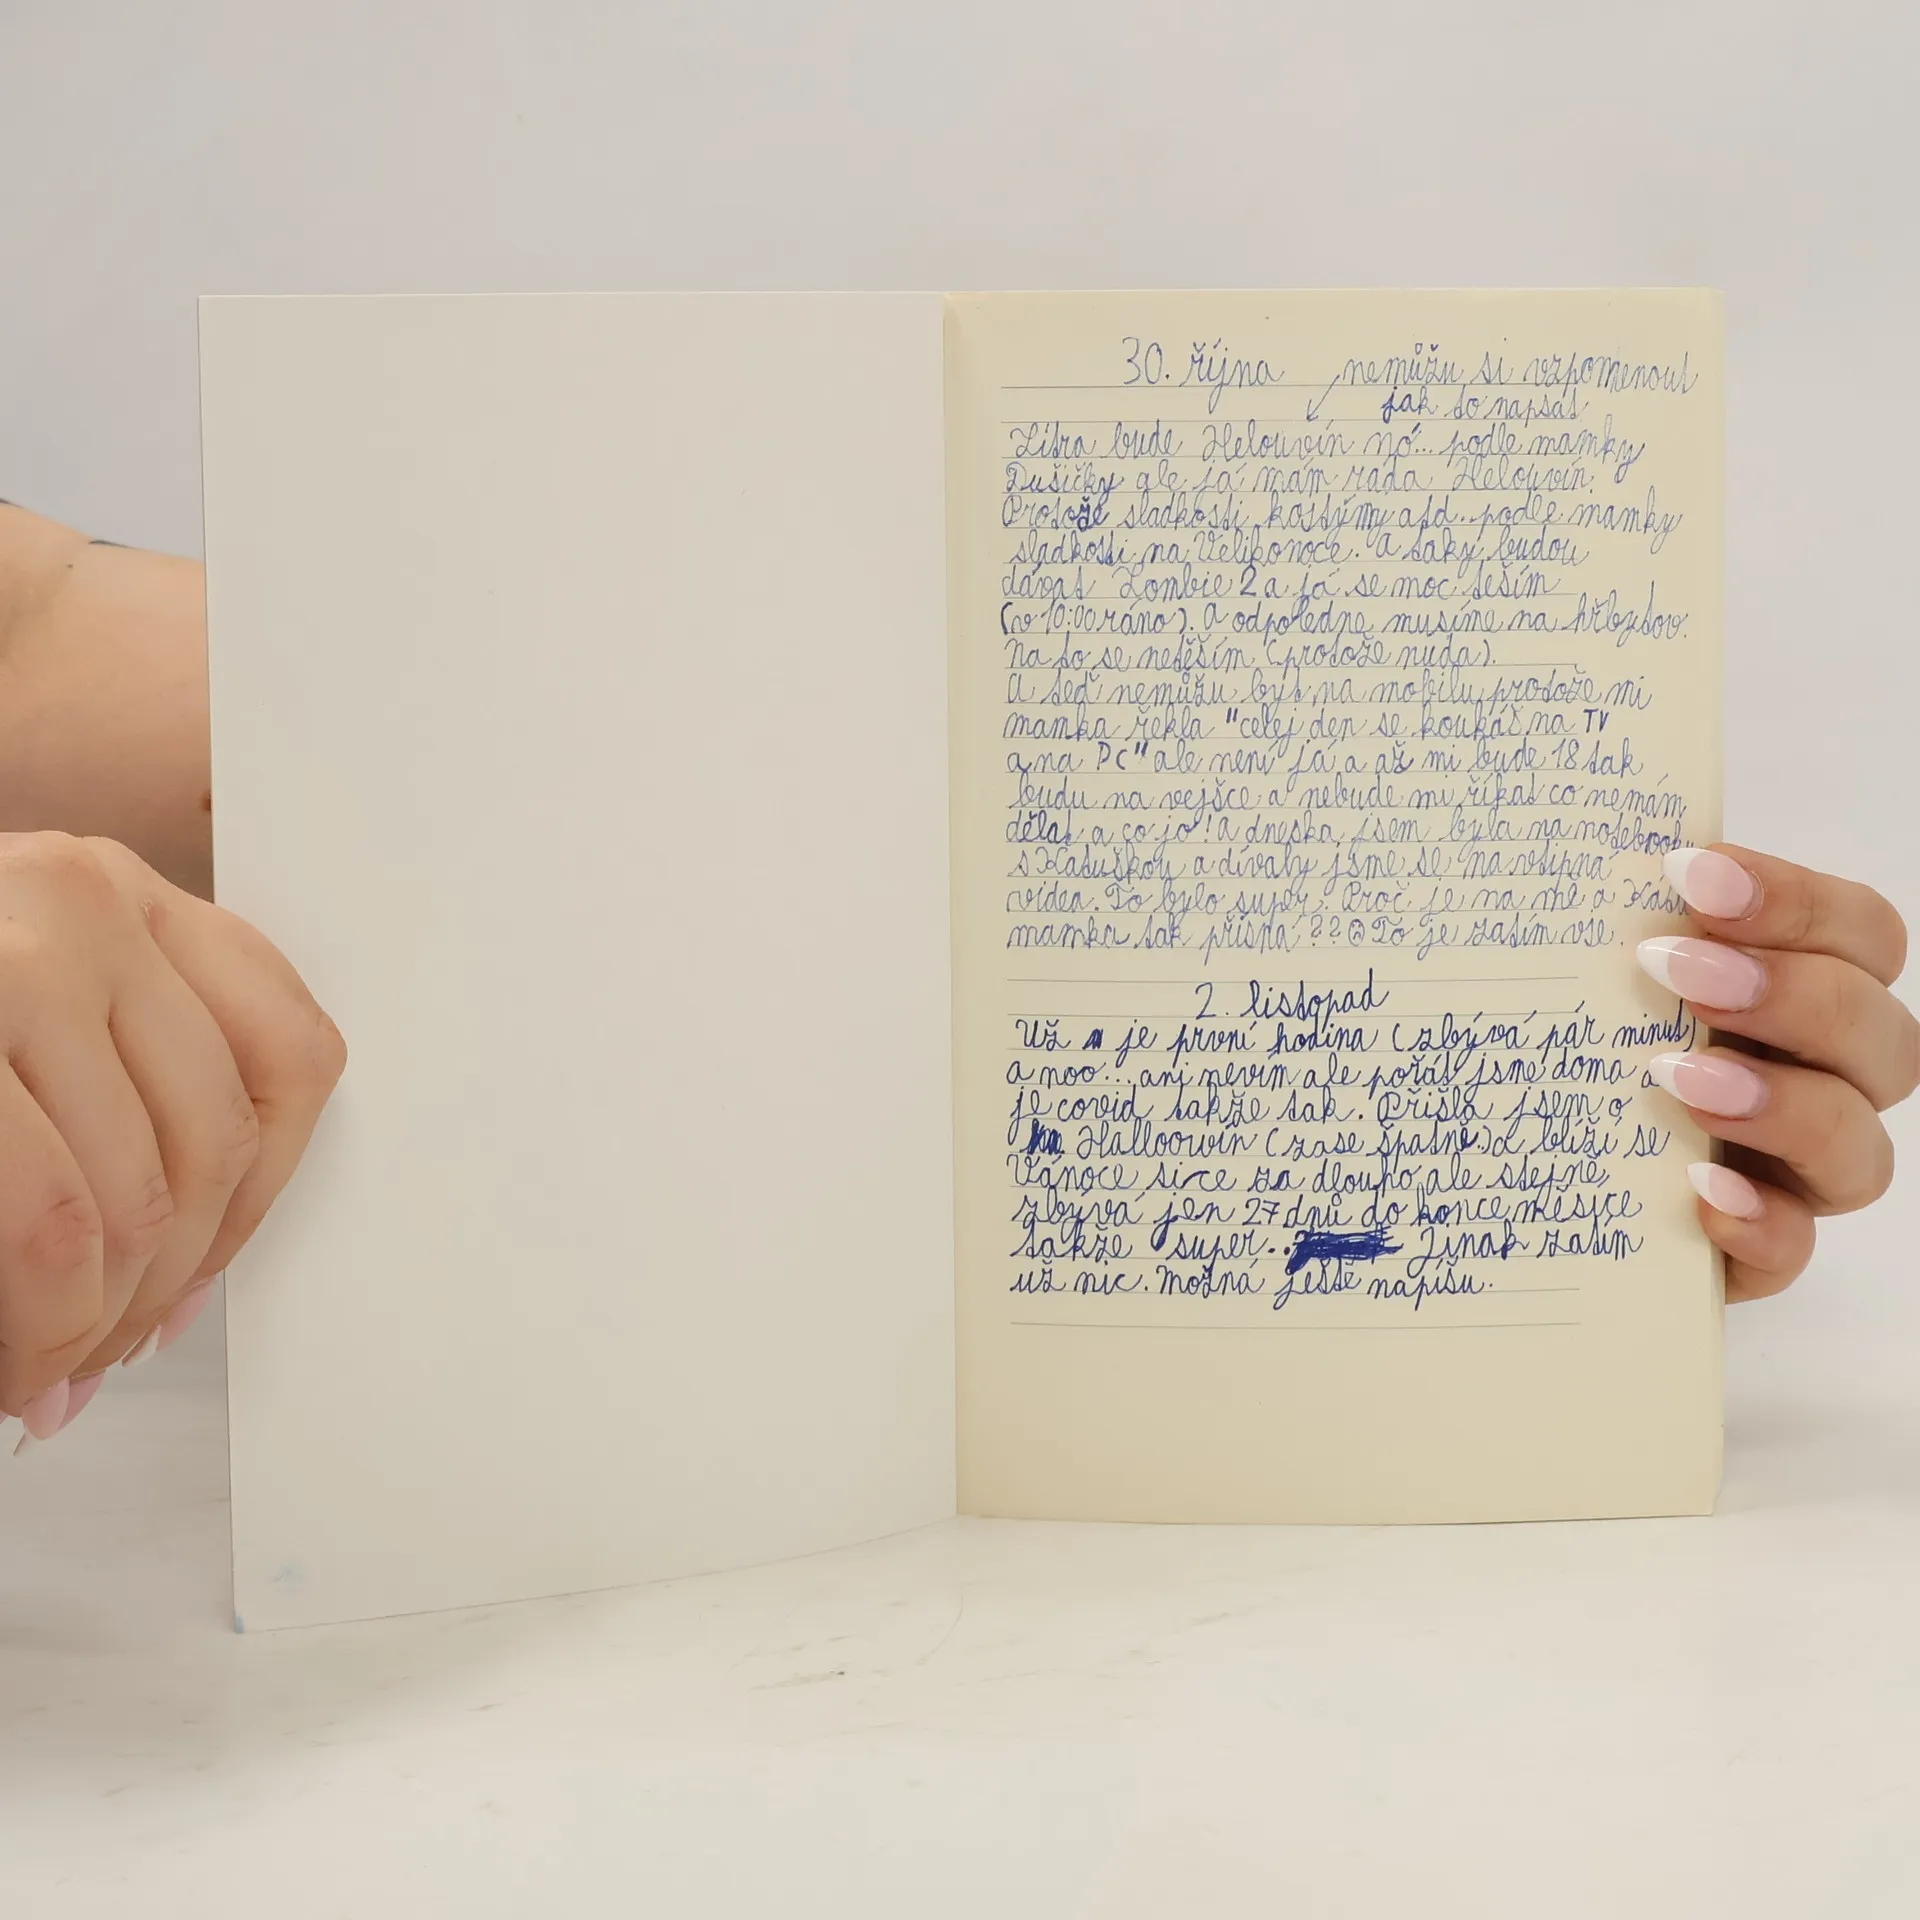 30. října nemůžu si vzpomenout
jak to napsat
Zítra bude Helouvín nó... podle mamky
Dušičky ale já mám ráda Helouvín.
Protože sladkosti, kostýmy atd.. podle mamky
sladkosti na Velikonoce. A taky budou
dávat Zombie 2 a já se moc těším
(v 10:00 ráno). A odpoledne musíme na hřbytov.
Na to se netěším (protože nuda).
A teď nemůžu být na mobilu protože mi
mamka řekla "celej den se koukáš na TV
a na PC" ale není já a až mi bude 18 tak
budu na vejšce a nebude mi říkat co nemám
dělat a co jo! A dneska jsem byla na notebooku
s Katuškou a dívaly jsme se na vtipná
videa. To bylo super. Proč je na mě a Káťu
mamka tak přísná ?? ☹ To je zatím vše.
2. listopad
Už je první hodina (zbývá pár minut)
a noo... ani nevím ale pořád jsme doma a
je covid takže tak. Přišla jsem o
Halloowín (zase špatně..) a blíží se
Vánoce sice za dlouho ale stejně,
zbývá jen 27 dnů do konce měsíce
takže super.. Jinak zatím
už nic. Možná ještě napíšu.